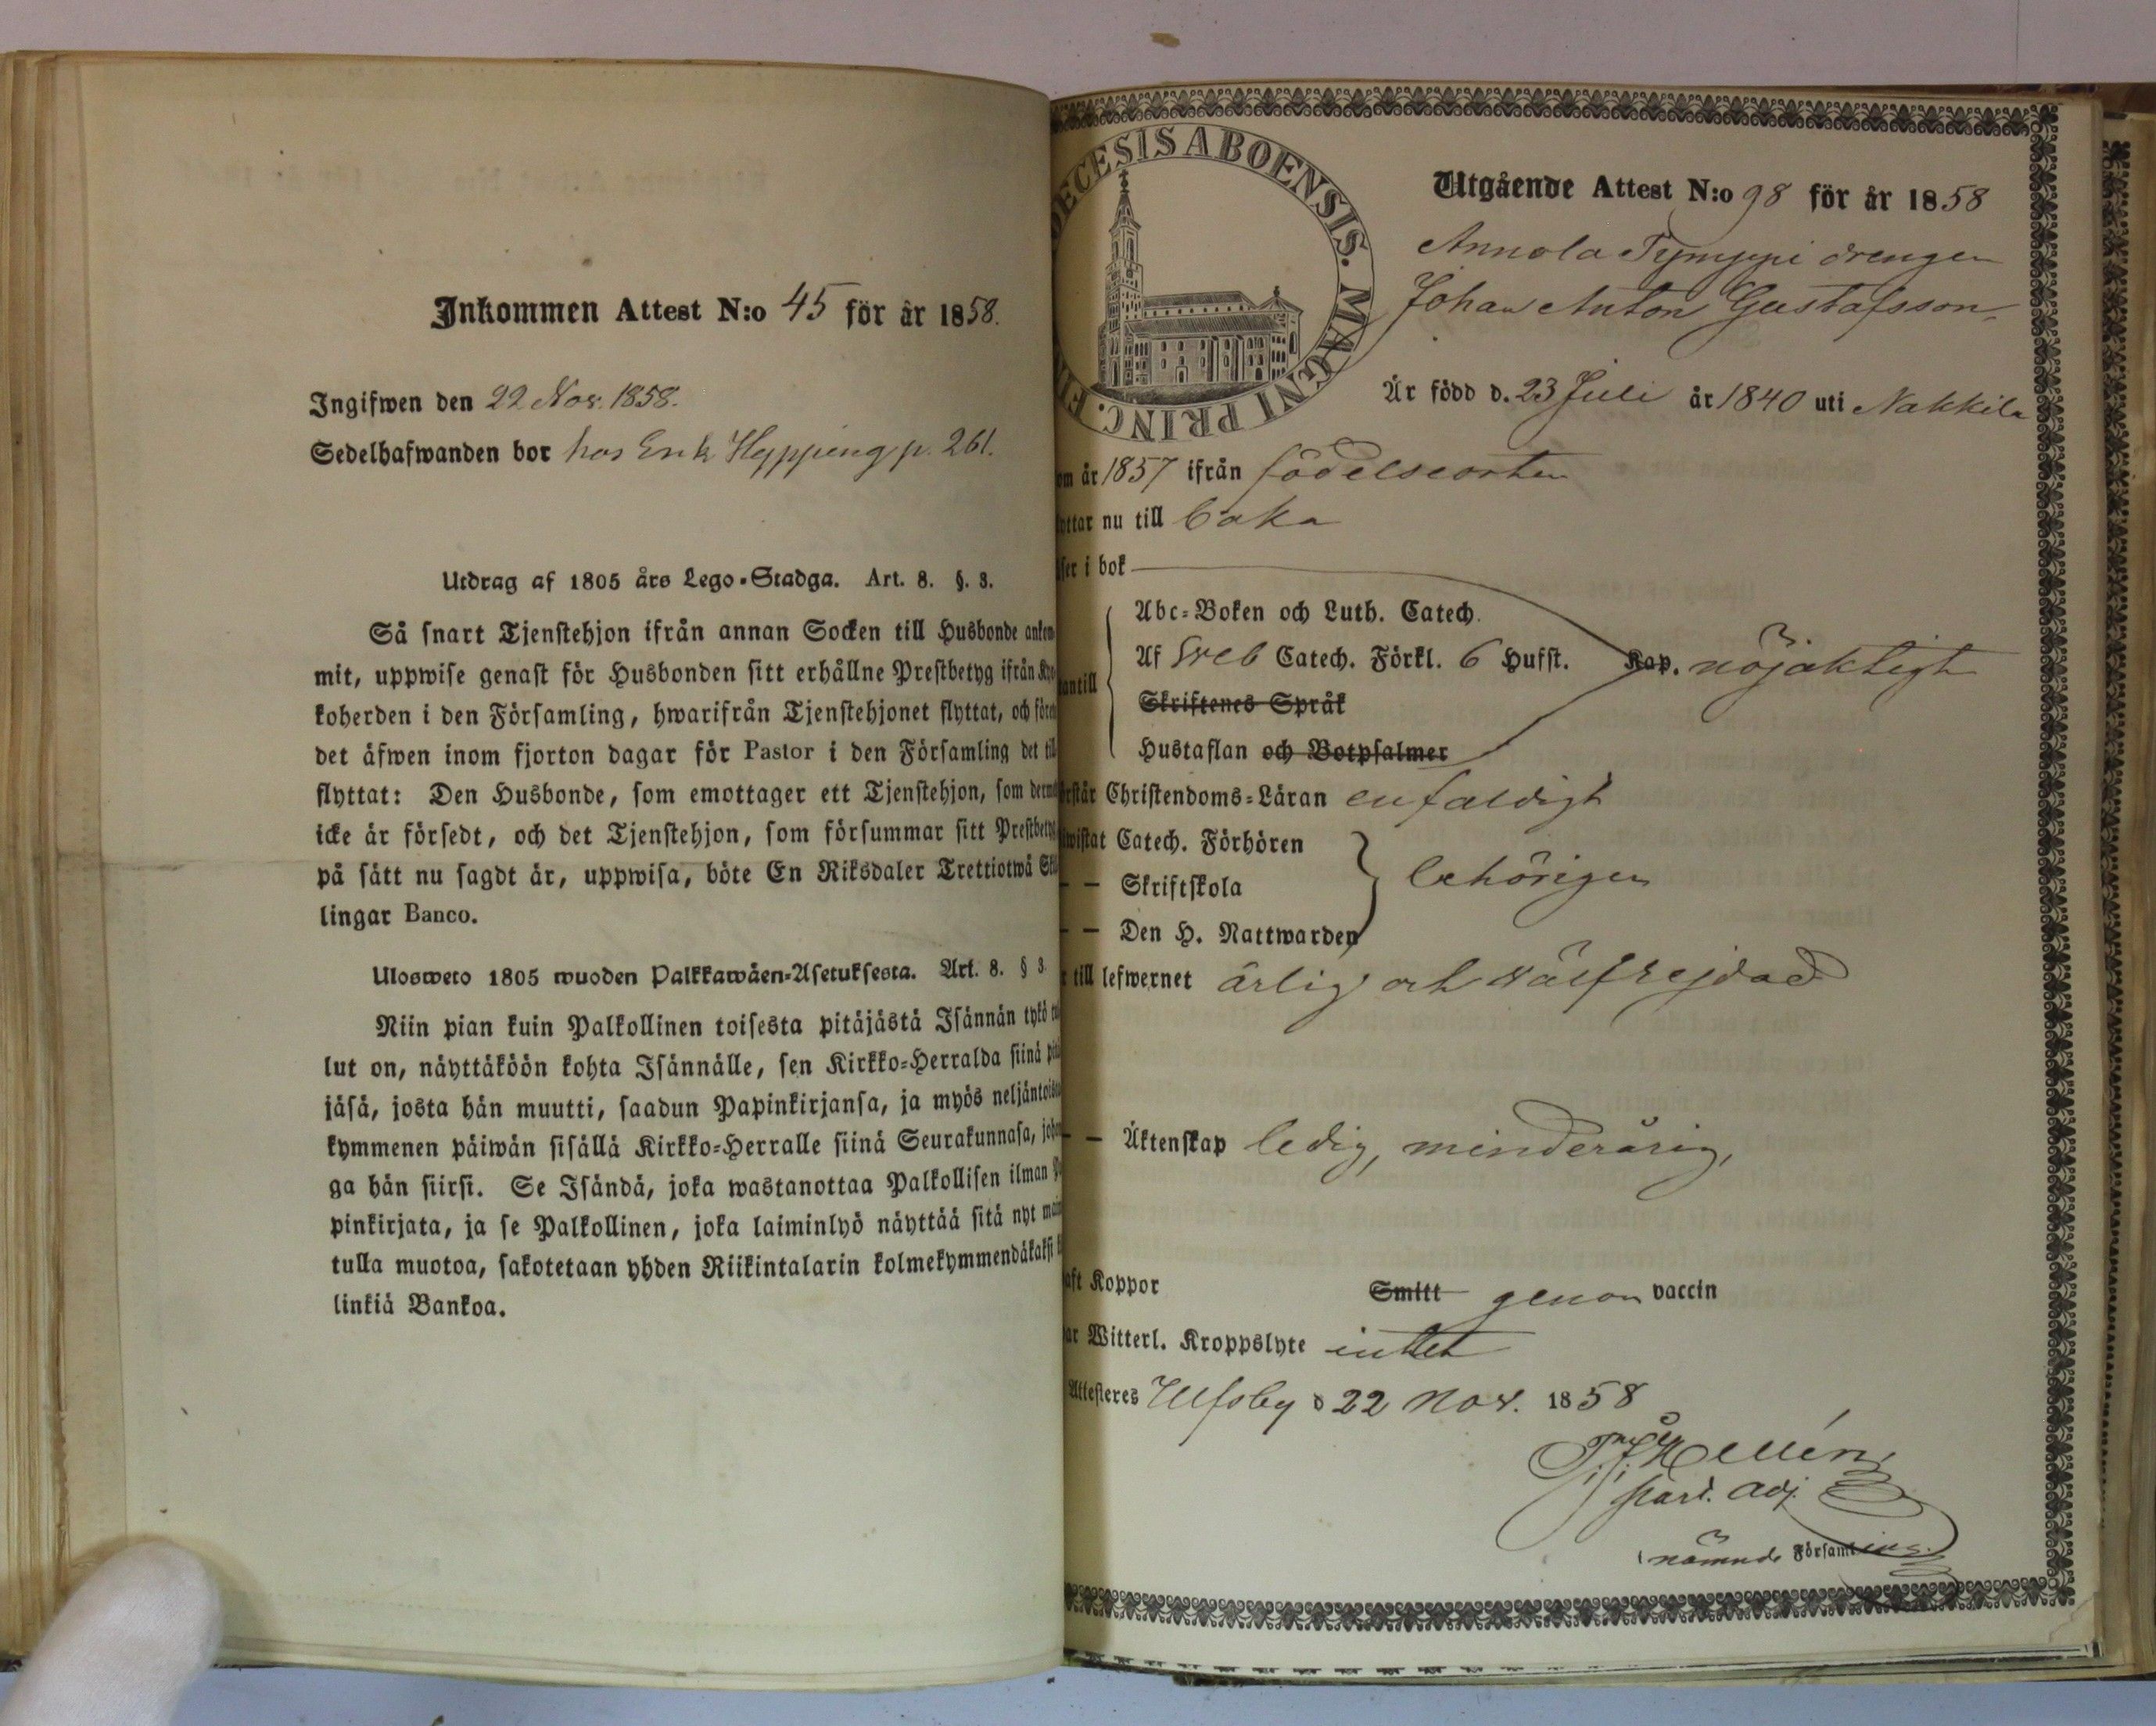 Inkommen Attest N:o 45 för år 1858.
Ingifwen den 22 Nov. 1858.
Sedelhafwanden bor hos Erik Hyppeng p. 261.
Utdrag af 1805 års Lego-Stadga. Art. 8. §. 3.
Så snart Tjenstehjon ifrån annan Socken till Husbonde ankom
mit, uppwise genast för Husbonden sitt erhållne Prestbetyg ifrån Kyr
koherden i den Församling, hwarifrån Tjenstehjonet flyttat, och före
det äfwen inom fjorton dagar för Pastor i den Församling det til
flyttat: Den Husbonde, som emottager ett Tjenstehjon, som derme
icke är försedt, och det Tjenstehjon, som försummar sitt Prestbety
på sätt nu sagdt är, uppwisa, böte En Riksdaler Trettiotwå Sk
lingar Banco.
Ulosweto 1805 wuoden Palkkawäen-Asetuksesta. Art. 8. § 3
Niin pian kuin Palkollinen toisesta pitäjästä Isännän tykö tu
lut on, näyttäköön kohta Isännälle, sen Kirkko-Herralda siinä pitä
jäsä, josta hän muutti, saadun Papinkirjansa, ja myös neljäntois
kymmenen päiwän sisällä Kirkko-Herralle siinä Seurakunnasa, joho
ga hän siirsi. Se Isändä, joka wastanottaa Palkollisen ilman Pa
pinkirjata, ja se Palkollinen, joka laiminlyö näyttää sitä nyt mai
tulla muotoa, sakotetaan yhden Riikintalarin kolmekymmendäkaksi k
linkiä Bankoa.
ECESIS ABOENSIS. MAGNI PRINC. FI
Utgående Attest N:o 98 för år 1858
Annola Tymppi drengen
Johan Anton Gustafsson
Är född d. 23 Juli år 1840 uti Nakkila
om år 1857 ifrån födelseorten
yttar nu till baka
ser i bok
Abc-Boken och Luth. Catech.
antill Af Sveb Catech. Förkl. 6 Hufst. Kap. nöjaktigt
Skriftenes Språk
Hustaflan och Botpsalmer
rstår Christendoms-Läran enfaldigt
wistat Catech. Förhören
— — Skriftskola behörigen
— — Den H. Nattwarden
r till lefwernet ärlig och välfrejdad
— — Äktenskap ledig, minderårig,
aft Koppor Smitt genom vaccin
ar Witterl. Kroppslyte intet
Attesteres Ulfsby d 22 Nov. 1858
Hellén
Past. adj.
i nämnde Församling.